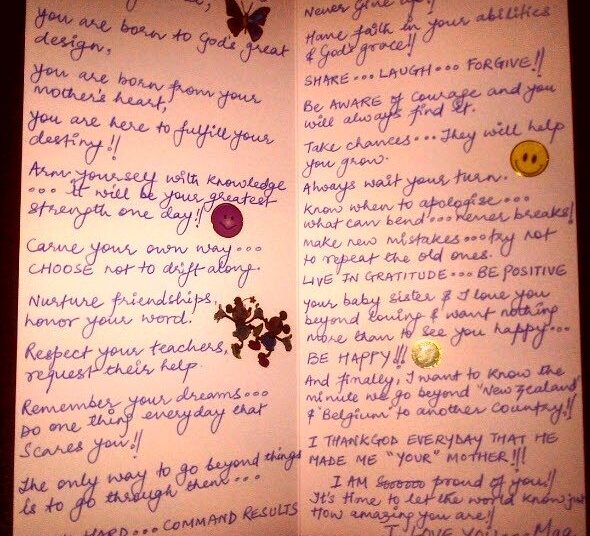 you are born to God's great
design,
you are born from your
mother's heart,
you are here to fulfill your
destiny!!
Arm yourself with knowledge
... It will be your greatest
strength one day!!
Carve your own way...
CHOOSE not to drift along.
Nurture friendships,
honor your word.
Respect your teachers,
request their help.
Remember your dreams...
Do one thing everyday that
Scares you!!
The only way to go beyond things
is to go through them...
HARD... COMMAND RESULTS
Never Give up!!
Have faith in your abilities
& God's grace!!
SHARE... LAUGH... FORGIVE!!
Be AWARE of courage and you
will always find it.
Take chances... They will help
you grow.
Always wait your turn.
Know when to apologise...
what can bend... never breaks!
make new mistakes... try not
to repeat the old ones.
LIVE IN GRATITUDE... BE POSITIVE
your baby sister & I love you
beyond loving & want nothing
more than to see you happy...
BE HAPPY!!!
And finally, I want to know the
minute we go beyond "New Zealand"
& "Belgium" to another country!!
I THANK GOD EVERYDAY THAT HE
MADE ME "YOUR" MOTHER!!!
I AM Soooooo proud of you!!
It's time to let the world know just
How amazing you are!!
I LOVE YOU...